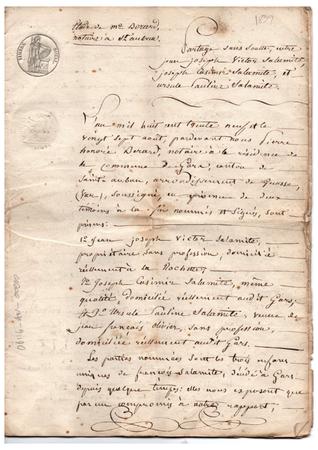 Étude de Me Dorard,
notaire à St aubau.
Partage sans Soulte, entre
jean joseph Victor Salamite,
joseph Casimir Salamite, et
ursule Pauline Salamite.
L'an mil huit cent trente neuf et le
vingt sept août, pardevant nous Pierre
honoré Dorard, notaire à la résidence de
la commune de Gars, canton de
Saint auban, arrondissement de Grasse,
(Var), soussigné, en présence de deux
témoins à la fin nommés et Signés, sont
présens:
1o jean joseph Victor Salamite,
propriétaire sans profession, domicilié
réellement à la Rochette;
2o joseph Casimir Salamite, même
qualité, domicilié réellement audit Gars;
& 3o Ursule Pauline Salamite, veuve de
jean françois olivier, sans profession,
domiciliée réellement audit Gars.
Les parties nommées sont les trois enfans
uniques de françois Salamite, décédé à Gars
depuis quelque tems; elles nous exposent que
par un compromis à notre rapport,